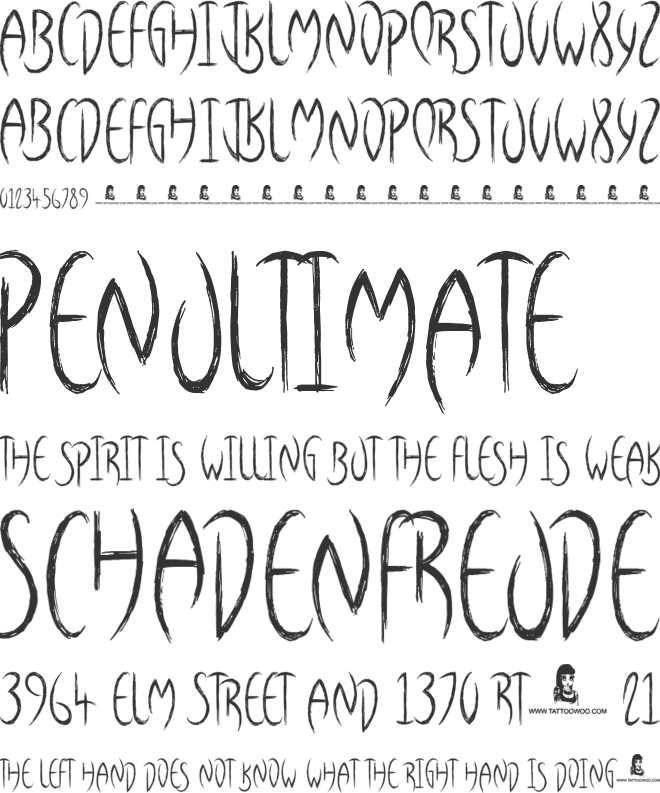 ABCDEFGHIJKLMNOPQRSTUVWXYZ
ABCDEFGHIJKLMNOPQRSTUVWXYZ
0123456789
PENULTIMATE
THE SPIRIT IS WILLING BUT THE FLESH IS WEAK
SCHADENFREUDE
3964 ELM STREET AND 1370 RT WWW.TATTOOWOO.COM 21
THE LEFT HAND DOES NOT KNOW WHAT THE RIGHT HAND IS DOING WWW.TATTOOWOO.COM